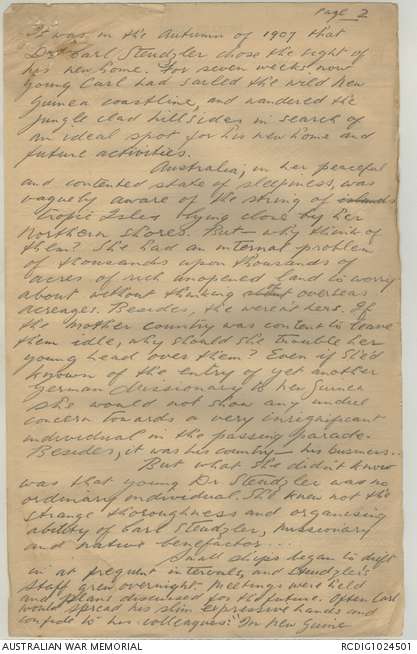 Page 2
It was in the Autumn of 1907 that
Dr. Carl Steudzler chose the sight of
his new home. For seven weeks now
young Carl had sailed the wild New
Guinea coastline, and wandered the
jungle clad hillsides in search of
an ideal spot for his new home and
future activities.
Australia, in her peaceful
and contented state of sleepiness, was
vaguely aware of the string of islands
tropic Isles lying close by her
Northern shores. But - why think of
them? She had an internal problem
of thousands upon thousands of
acres of rich unopened land to worry
about without thinking overseas
acreages. Besides, they weren't hers. If
the mother country was content to leave
them idle, why should she trouble her
young head over them? Even if she'd
known of the entry of yet another
German missionary to New Guinea
she would not show any undue
concern towards a very insignificant
individual in the passing parade.
Besides, it was his country - his business..
But what she didn't know
was that young Dr Steudzler was no
ordinary individual. She knew not the
strange thoroughness and organising
ability of Carl Steudzler, missionary
and native benefactor...
Small ships began to drift
in at frequent intervals, and Steudzler's
staff grew overnight. Meetings were held
and plans discussed for the future. Often Carl
would spread his slim expressive hands and
confide to his colleagues: "In New Guine
AUSTRALIAN WAR MEMORIAL
RCDIG1024501